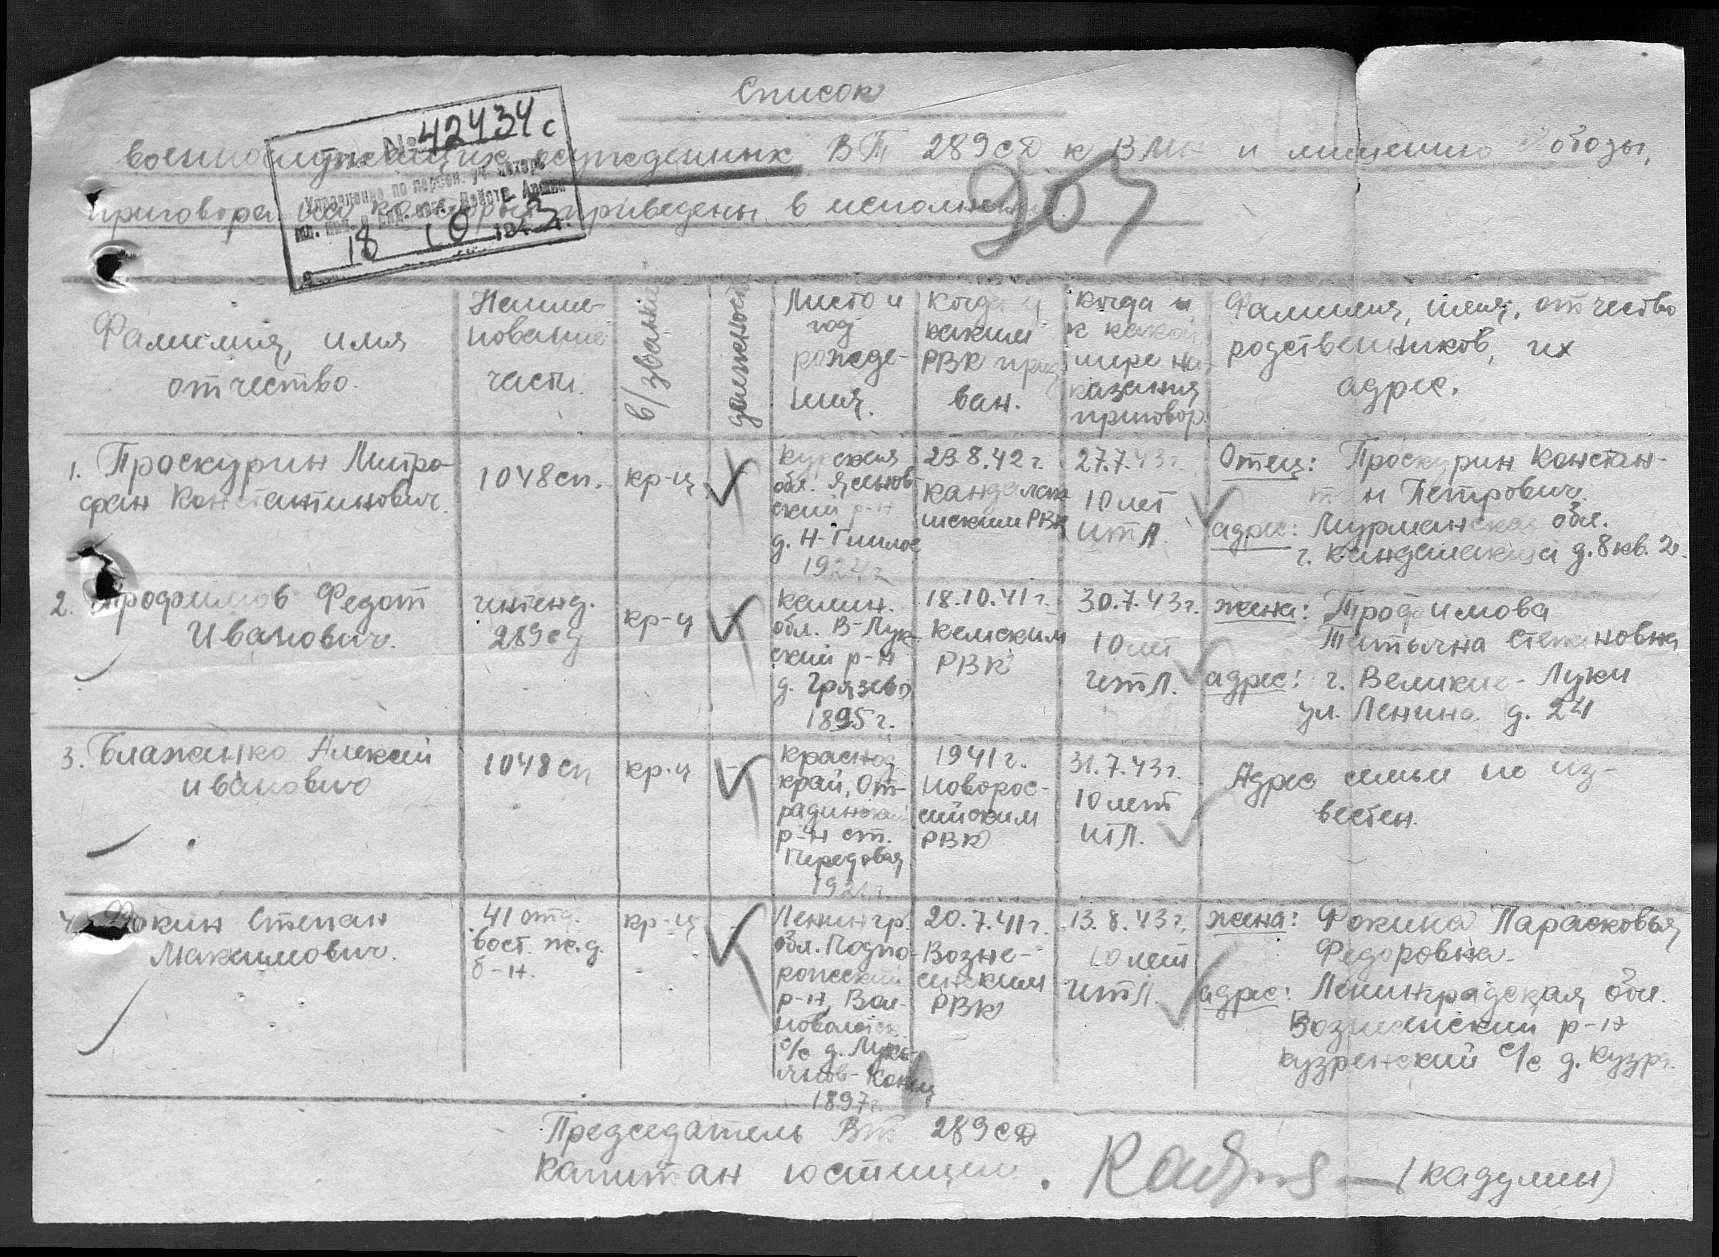 Список
военнослужащих осужденных ВТ 289 сд к ВМН и лишению свободы,
приговора на которых приведены в исполнение.
№ 42434с
Управление по персон. уч. потерь
18 10 1943 г.
Фамилия, имя
отчество.
Наиме-
нование
части.
в/звание
должность
Место и
год
рожде-
ния.
Когда и
каким
РВК приз
ван.
Когда и
к какой
мере на-
казания
приговор.
Фамилия, имя, отчество
родственников, их
адрес.
1. Проскурин Митро-
фан Константинович.
1048 сп.
кр-ц
Курская
обл. Яснов-
ский р-н
д. Н-Гнилое
1924 г
23.8.42 г.
Кандалак
шским РВК
27.7.43 г.
10 лет
ИТЛ.
Отец: Проскурин Констан-
тин Петрович.
адрес: Мурманская обл.
г. Кандалакша д. 8 кв. 2.
2. Трофимов Федот
Иванович.
интенд.
289 сд
кр-ц
Калин.
обл. В-Лук-
ский р-н
д. Грязево
1895 г.
18.10.41 г.
Кемским
РВК
30.7.43 г.
10 лет
ИТЛ.
жена: Трофимова
Степановна
адрес: г. Великие-Луки
ул. Ленина д. 24
3. Блаженко Алексей
Иванович
1048 сп
кр-ц
Краснод
край, От-
радинский
р-н ст.
Передовая
1941 г.
Новорос-
сийским
РВК
31.7.43 г.
10 лет
ИТЛ.
Адрес семьи не из-
вестен.
4. Фокин Степан
Максимович.
41 отд.
вост. ж.д.
б-н.
кр-ц
Ленингр.
обл. Подпо-
рожский
р-н,
с/с д.
1897 г.
20.7.41 г.
Возне-
сенским
РВК
13.8.43 г.
10 лет
ИТЛ.
жена: Фокина Парасковья
Федоровна.
адрес: Ленинградская обл.
Вознесенский р-н
кузренский с/с д. Кузра.
Председатель ВТ 289 сд
капитан юстиции. (Кадулин)